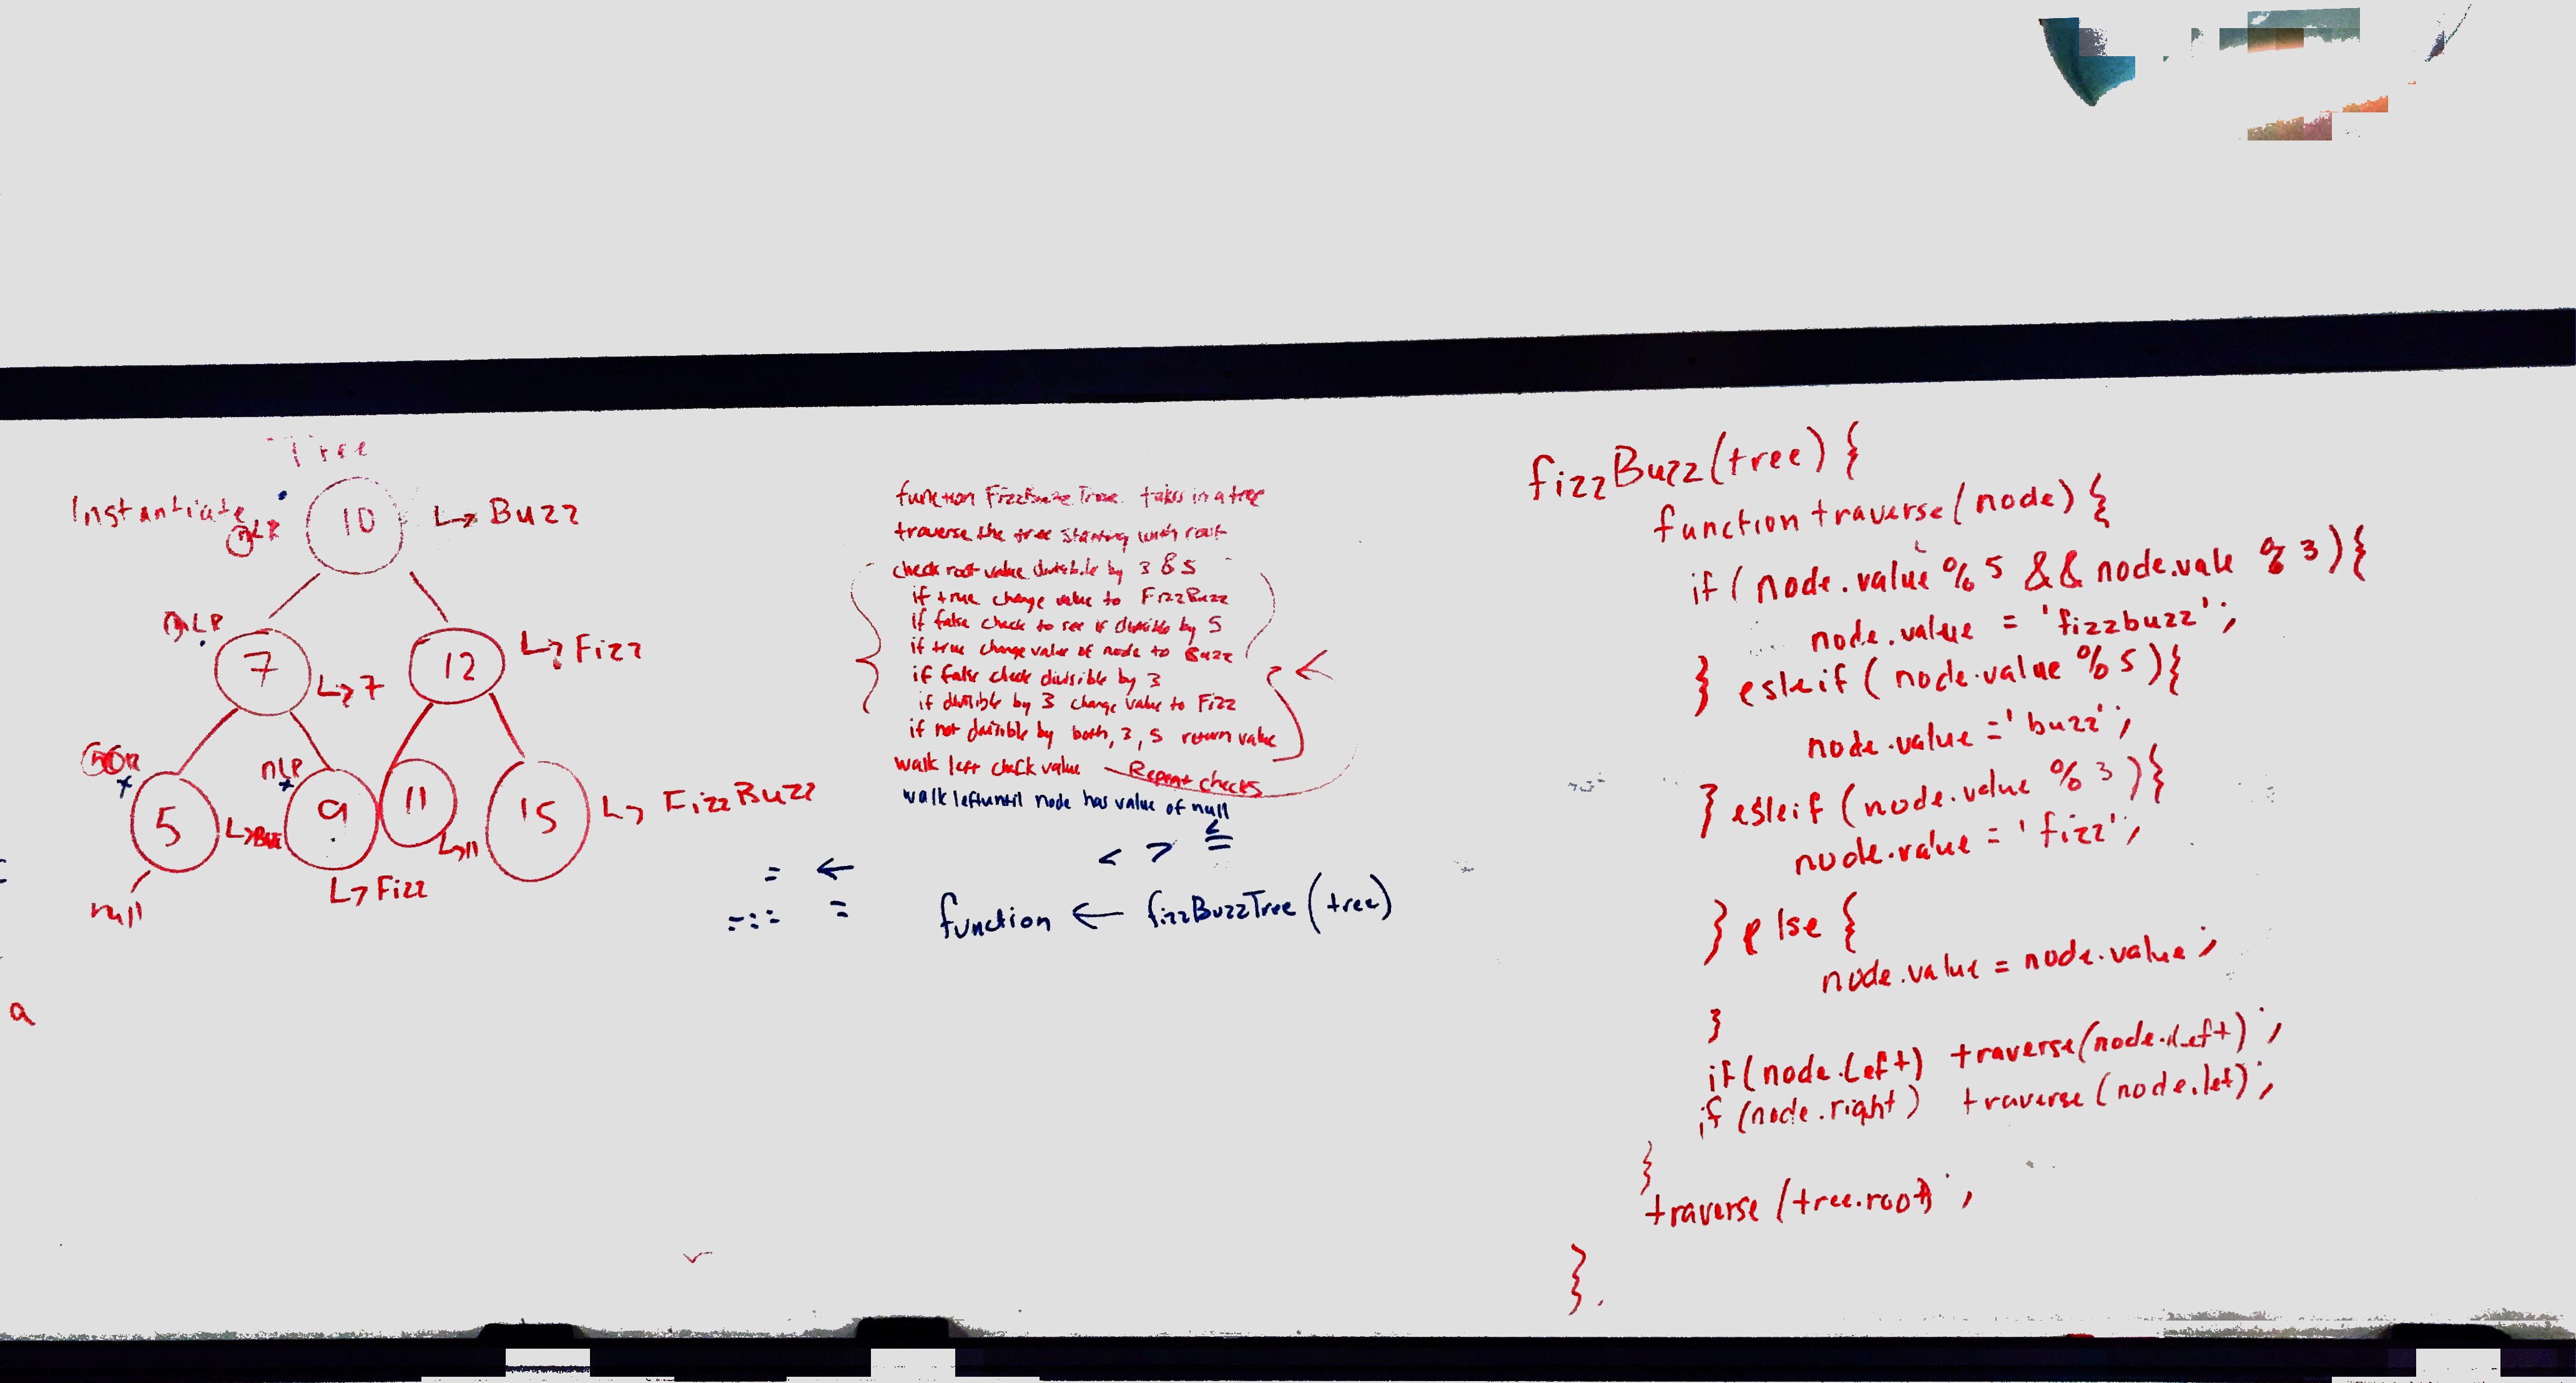 Tree
Instantiate
nLR
10
↳ Buzz
nLR
7
↳ 7
12
↳ Fizz
5
nLR
9
↳ Fizz
11
↳ 11
15
↳ FizzBuzz
null
a
function FizzBuzzTree takes in a tree
traverse the tree starting with root
check root value divisible by 3 & 5
if true change value to FizzBuzz
if false check to see if divisible by 5
if true change value of node to Buzz
if false check divisible by 3
if divisible by 3 change value to Fizz
if not divisible by both, 3, 5 return value
walk left check value Repeat checks
walk left until node has value of null
< > ≤
= ←
=
function ← fizzBuzzTree(tree)
fizzBuzz(tree) {
function traverse(node) {
if (node.value % 5 && node.vale % 3){
node.value = 'fizzbuzz';
} esleif (node.value % 5){
node.value = 'buzz';
} esleif (node.value % 3){
node.value = 'fizz';
} else {
node.value = node.value;
}
if(node.left) traverse(node.left);
if (node.right) traverse(node.let);
}
traverse(tree.root);
}